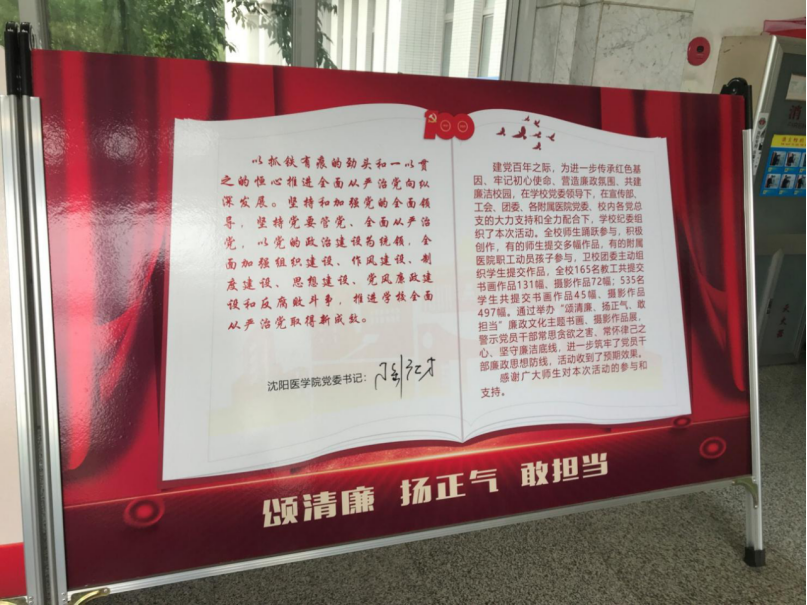 以抓铁有痕的劲头和一以贯
之的恒心推进全面从严治党向纵
深发展。坚持和加强党的全面领
导，坚持党要管党、全面从严治
党，以党的政治建设为统领，全
面加强组织建设、作风建设、制
度建设、思想建设、党风廉政建
设和反腐败斗争，推进学校全面
从严治党取得新成效。
沈阳医学院党委书记：
100
建党百年之际，为进一步传承红色基
因、牢记初心使命、营造廉政氛围、共建
廉洁校园，在学校党委领导下，在宣传部、
工会、团委、各附属医院党委、校内各党总
支的大力支持和全力配合下，学校纪委组
织了本次活动。全校师生踊跃参与，积极
创作，有的师生提交多幅作品，有的附属
医院职工动员孩子参与，卫校团委主动组
织学生提交作品，全校165名教工共提交
书画作品131幅，摄影作品72幅；535名
学生共提交书画作品45幅、摄影作品
497幅。通过举办“颂清廉、扬正气、敢
担当”廉政文化主题书画、摄影作品展，
警示党员干部常思贪欲之害、常怀律己之
心、坚守廉洁底线，进一步筑牢了党员干
部廉政思想防线，活动收到了预期效果。
感谢广大师生对本次活动的参与和
支持。
颂清廉 扬正气 敢担当
消